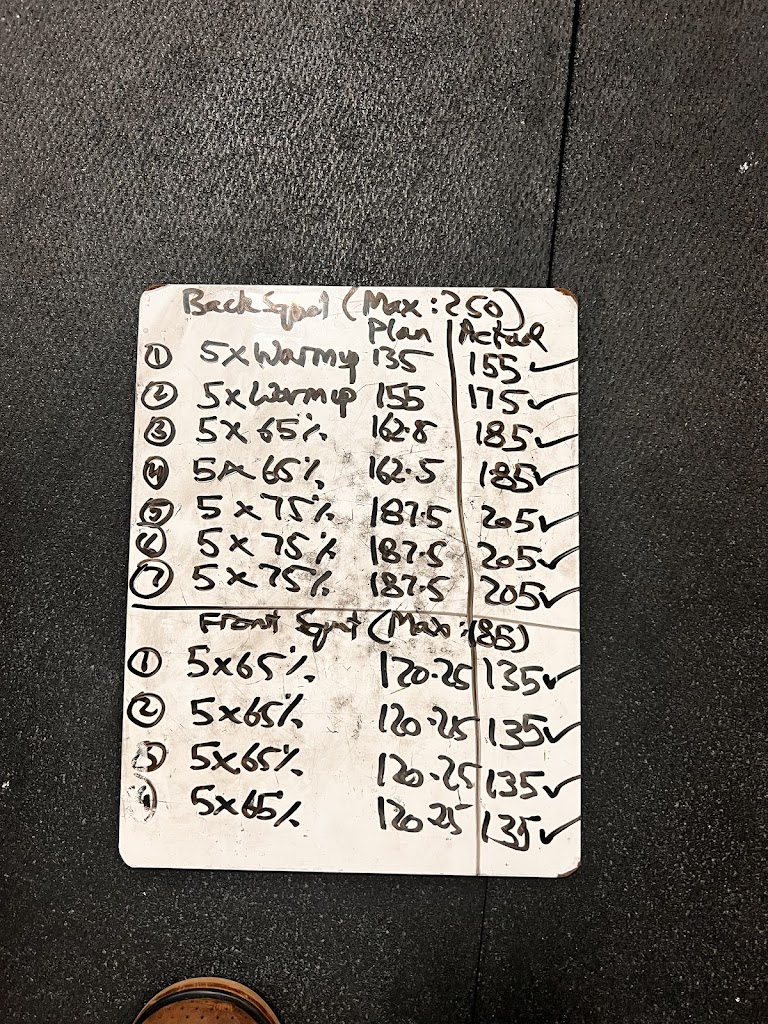 Back Squat (Max: 250)
Plan Actual
① 5 x Warmup 135 155 ✓
② 5 x Warmup 155 175 ✓
③ 5 x 65% 162.8 185 ✓
④ 5 x 65% 162.5 185 ✓
⑤ 5 x 75% 187.5 205 ✓
⑥ 5 x 75% 187.5 205 ✓
⑦ 5 x 75% 187.5 205 ✓
Front Squat (Max: 185)
① 5x65% 120.25 135 ✓
② 5x65% 120.25 135 ✓
③ 5x65% 120.25 135 ✓
④ 5x65% 120.25 135 ✓